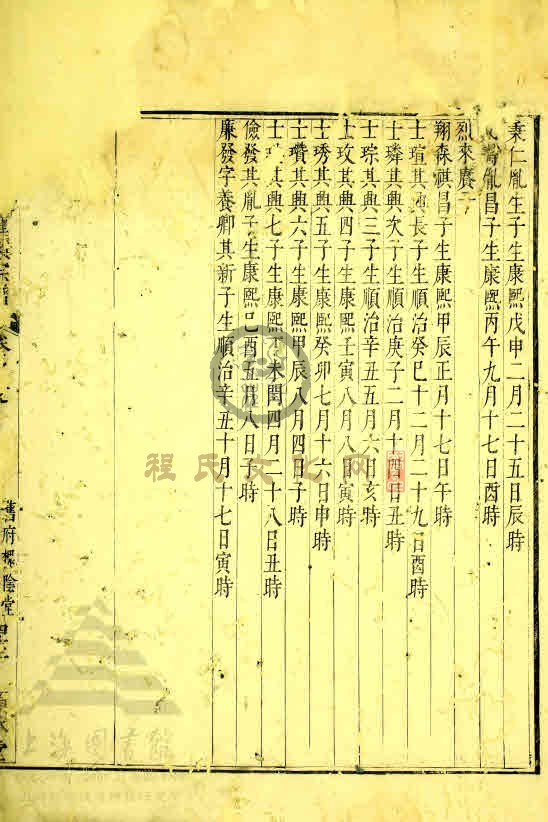 秉仁胤生子生康熙戊申二月二十五日辰時
胤昌子生康熙丙午九月十七日酉時
烈來廣子
翔森祺昌子生康熙甲辰正月十七日午時
士瑄其典長子生順治癸巳十二月二十九日酉時
士璘其典次子生順治庚子二月十四日丑時
士琮其典三子生順治辛丑五月六日亥時
士玫其典四子生康熙壬寅八月八日寅時
士琇其典五子生康熙癸卯七月十六日申時
士瓚其典六子生康熙甲辰八月四日子時
士其典七子生康熙丁未閏四月二十八日丑時
儉發其胤子生康熙己酉五月八日子時
廉發字養卿其新子生順治辛丑十月十七日寅時
舊府槐陰堂
程氏文化网
上海圖書館